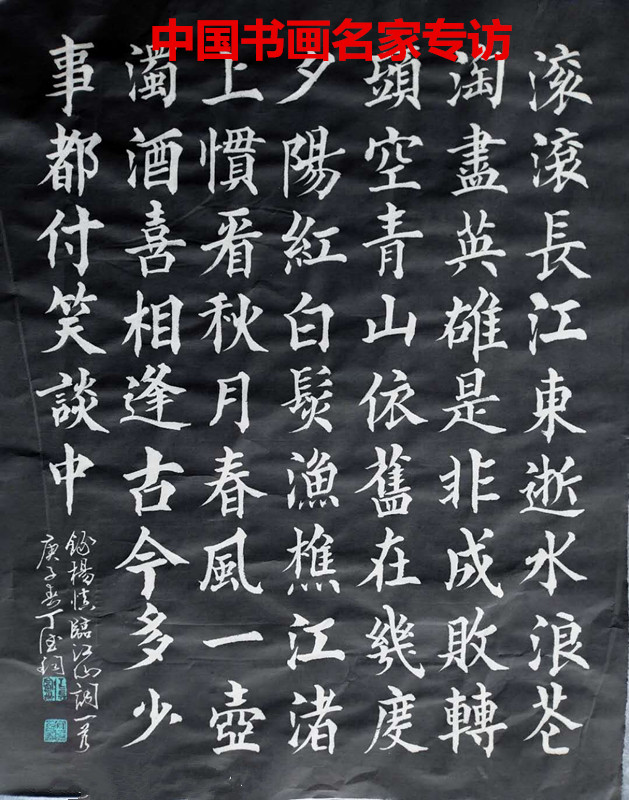 中国书画名家专访
滚滾長江東逝水浪花
淘盡英雄是非成敗轉
頭空青山依舊在幾度
夕陽紅白髮漁樵江渚
上慣看秋月春風一壺
濁酒喜相逢古今多少
事都付笑談中
錄楊慎臨江仙詞一首
庚子春丁